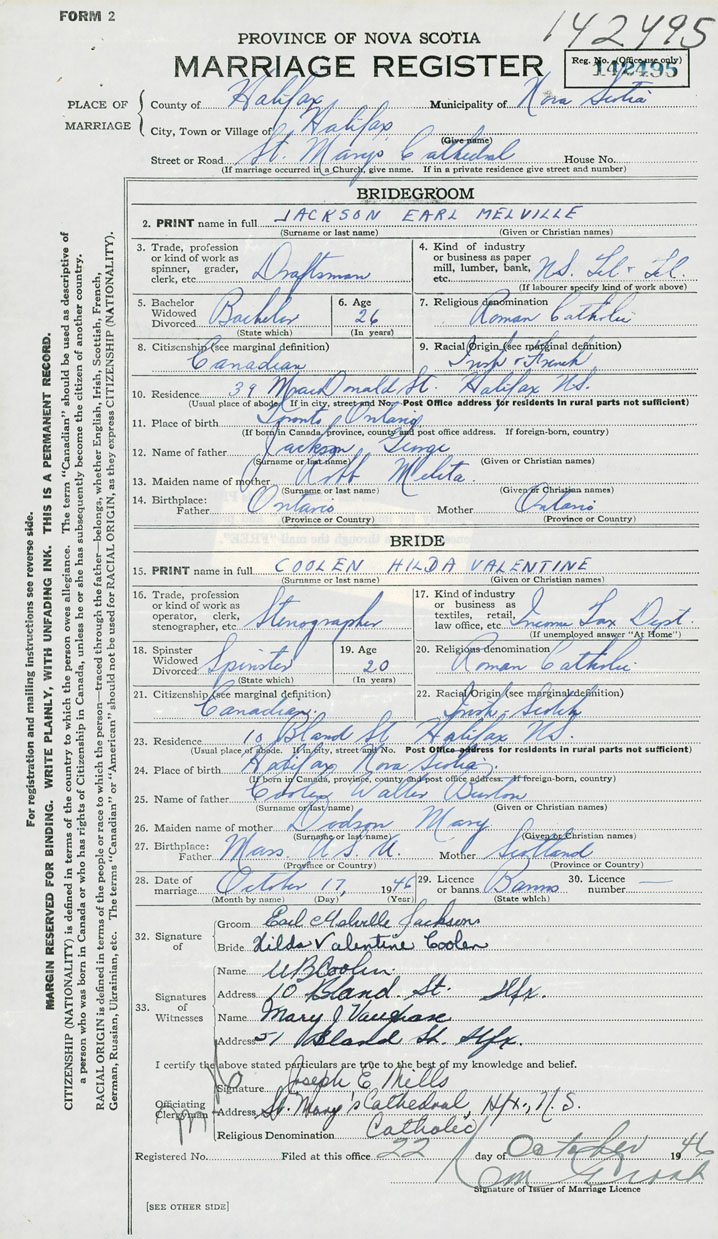 FORM 2
142495
PROVINCE OF NOVA SCOTIA
MARRIAGE REGISTER
Reg. No. (Office use only)
142495
PLACE OF MARRIAGE
County of Halifax Municipality of Nova Scotia
City, Town or Village of Halifax
(Give name)
Street or Road St. Mary's Cathedral House No.
(If marriage occurred in a Church, give name. If in a private residence give street and number)
BRIDEGROOM
2. PRINT name in full JACKSON EARL MELVILLE
(Surname or last name) (Given or Christian names)
3. Trade, profession or kind of work as spinner, grader, clerk, etc. Draftsman
4. Kind of industry or business as paper mill, lumber, bank, etc. N.S. Tel & Tel.
(If labourer specify kind of work above)
5. Bachelor Widowed Divorced Bachelor
(State which)
6. Age 26
(In years)
7. Religious denomination
Roman Catholic
8. Citizenship (see marginal definition)
Canadian
9. Racial Origin (see marginal definition)
Irish & French
10. Residence 39 MacDonald St. Halifax N.S.
(Usual place of abode. If in city, street and No. Post Office address for residents in rural parts not sufficient)
11. Place of birth Toronto Ontario
(If born in Canada, province, county and post office address. If foreign-born, country)
12. Name of father Jackson George
(Surname or last name) (Given or Christian names)
13. Maiden name of mother Robb Melita
(Surname or last name) (Given or Christian names)
14. Birthplace: Father Ontario Mother Ontario
(Province or Country) (Province or Country)
BRIDE
15. PRINT name in full COOLEN HILDA VALENTINE
(Surname or last name) (Given or Christian names)
16. Trade, profession or kind of work as operator, clerk, stenographer, etc. Stenographer
17. Kind of industry or business as textiles, retail, law office, etc. Income Tax Dept.
(If unemployed answer "At Home")
18. Spinster Widowed Divorced Spinster
(State which)
19. Age 20
(In years)
20. Religious denomination
Roman Catholic
21. Citizenship (see marginal definition)
Canadian.
22. Racial Origin (see marginal definition)
Irish - Scotch
23. Residence 10 Bland St. Halifax N.S.
(Usual place of abode. If in city, street and No. Post Office address for residents in rural parts not sufficient)
24. Place of birth Halifax Nova Scotia.
(If born in Canada, province, county and post office address. If foreign-born, country)
25. Name of father Coolen Walter Burton
(Surname or last name) (Given or Christian names)
26. Maiden name of mother Dodson Mary
(Surname or last name) (Given or Christian names)
27. Birthplace: Father Mass. U.S.A. Mother Scotland
(Province or Country) (Province or Country)
28. Date of marriage October 17, 1946
(Month by name) (Day) (Year)
29. Licence or banns Banns
(State which)
30. Licence number —
32. Signature of
Groom Earl Melville Jackson
Bride Hilda Valentine Coolen
33. Signatures of Witnesses
Name W B Coolen
Address 10 Bland St. Hfx.
Name Mary J Vaughan
Address 51 Bland St. Hfx.
I certify the above stated particulars are true to the best of my knowledge and belief.
Officiating Clergyman
Signature Joseph E Mills
Address St. Mary's Cathedral, Hfx., N.S.
Religious Denomination Catholic
Registered No. Filed at this office 22 day of October 1946
Signature of Issuer of Marriage Licence
[SEE OTHER SIDE]
For registration and mailing instructions see reverse side.
MARGIN RESERVED FOR BINDING. WRITE PLAINLY, WITH UNFADING INK. THIS IS A PERMANENT RECORD.
CITIZENSHIP (NATIONALITY) is defined in terms of the country to which the person owes allegiance. The term "Canadian" should be used as descriptive of
a person who was born in Canada or who has rights of Citizenship in Canada, unless he or she has subsequently become the citizen of another country.
RACIAL ORIGIN is defined in terms of the people or race to which the person—traced through the father—belongs, whether English, Irish, Scottish, French,
German, Russian, Ukrainian, etc. The terms "Canadian" or "American" should not be used for RACIAL ORIGIN, as they express CITIZENSHIP (NATIONALITY).